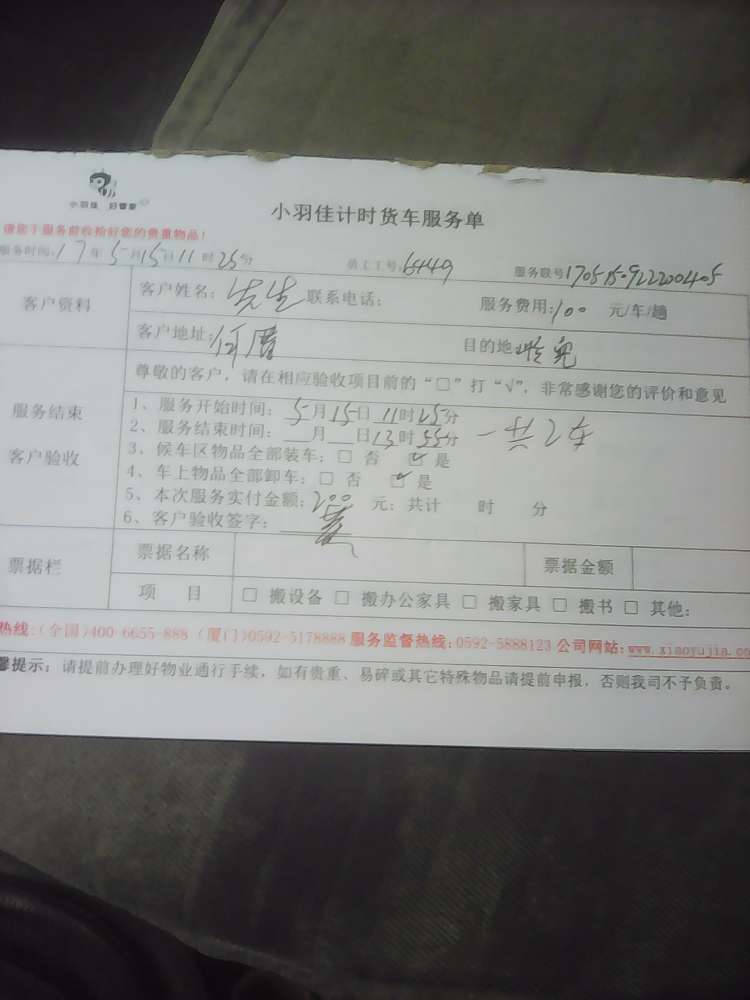 小羽佳 好管家
小羽佳计时货车服务单
请您于服务前收拾好您的贵重物品!
服务时间:17年5月15日11时25分 员工工号:6449 服务联号17051509222200405
客户资料
客户姓名:先生 联系电话: 服务费用:100 元/车/趟
客户地址:何厝 目的地:
服务结束
客户验收
尊敬的客户,请在相应验收项目前的“□”打“√”,非常感谢您的评价和意见
1、服务开始时间:5月15日11时25分
2、服务结束时间:__月__日13时55分 一共2车
3、候车区物品全部装车:□ 否 ☑ 是
4、车上物品全部卸车:□ 否 ☑ 是
5、本次服务实付金额:200 元;共计 时 分
6、客户验收签字:
票据栏
票据名称 票据金额
项 目 □ 搬设备 □ 搬办公家具 □ 搬家具 □ 搬书 □ 其他:
热线:(全国)400-6655-888 (厦门)0592-5178888 服务监督热线:0592-5888123 公司网站:www.xiaoyujia.co
馨提示:请提前办理好物业通行手续,如有贵重、易碎或其它特殊物品请提前申报,否则我司不予负责。